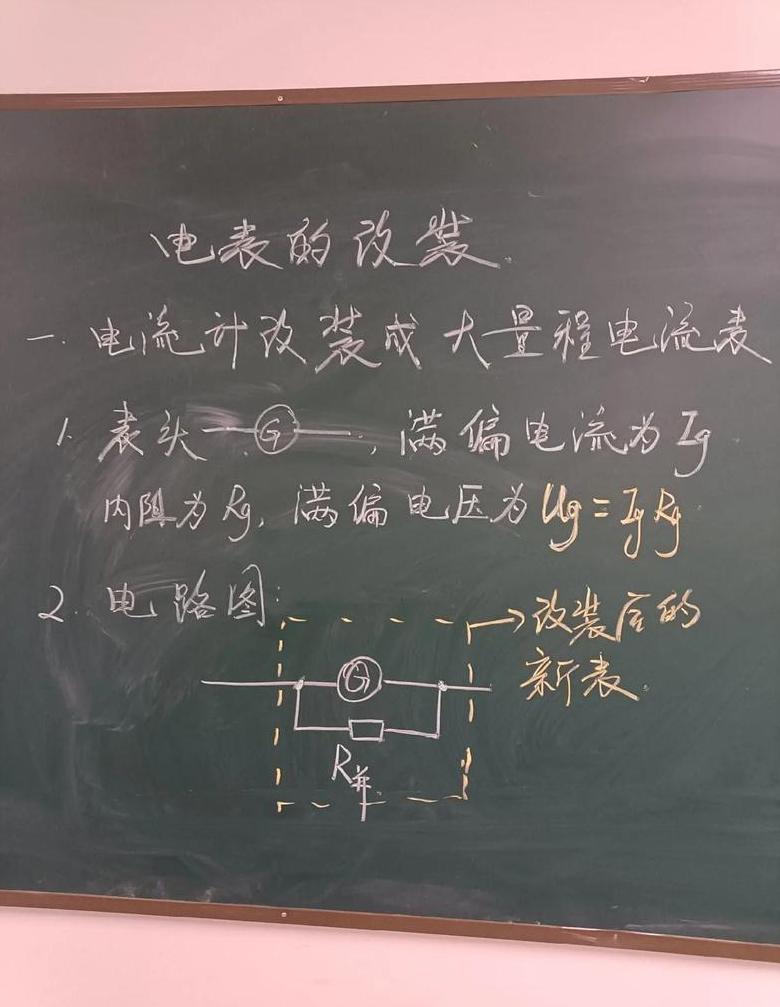 电表的改装.
一. 电流计改装成大量程电流表
1. 表头 G , 满偏电流为 Ig
内阻为 Rg, 满偏电压为 Ug = Ig Rg
2. 电路图:
→改装后的
新表.
G
R并